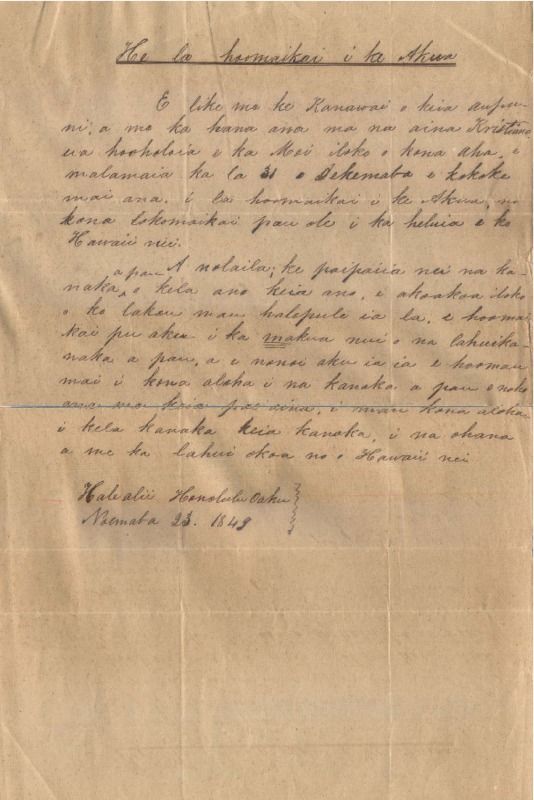 He la hoomaikai i ke Akua
E like me ke Kanawai o keia aupu-
ni, a me ka hana ana ma na aina Kristiano
ua hooholoia e ka Moi iloko o kona aha, e
malamaia ka la 31 o Dekemaba e kokoke
mai ana, i la hoomaikai i ke Akua, no
kona lokomaikai pau ole i ka heluia e ko
Hawaii nei.
a pau
A nolaila; ke paipaiia nei na ka-
naka ^ o kela ano keia ano, e akoakoa iloko
o ko lakou mau halepule ia la, e hoomai
kai pu aku i ka makua nui o na lahuika-
naka a pau, a e nonoi aku ia ia e hoomau
mai i kona aloha i na kanaka a pau e noho
ana ma keia pae aina, i mau kona aloha
i kela kanaka keia kanaka, i na ohana
a me ka lahui okoa no o Hawaii nei
Halealii Honolulu Oahu
Noemaba 23. 1849